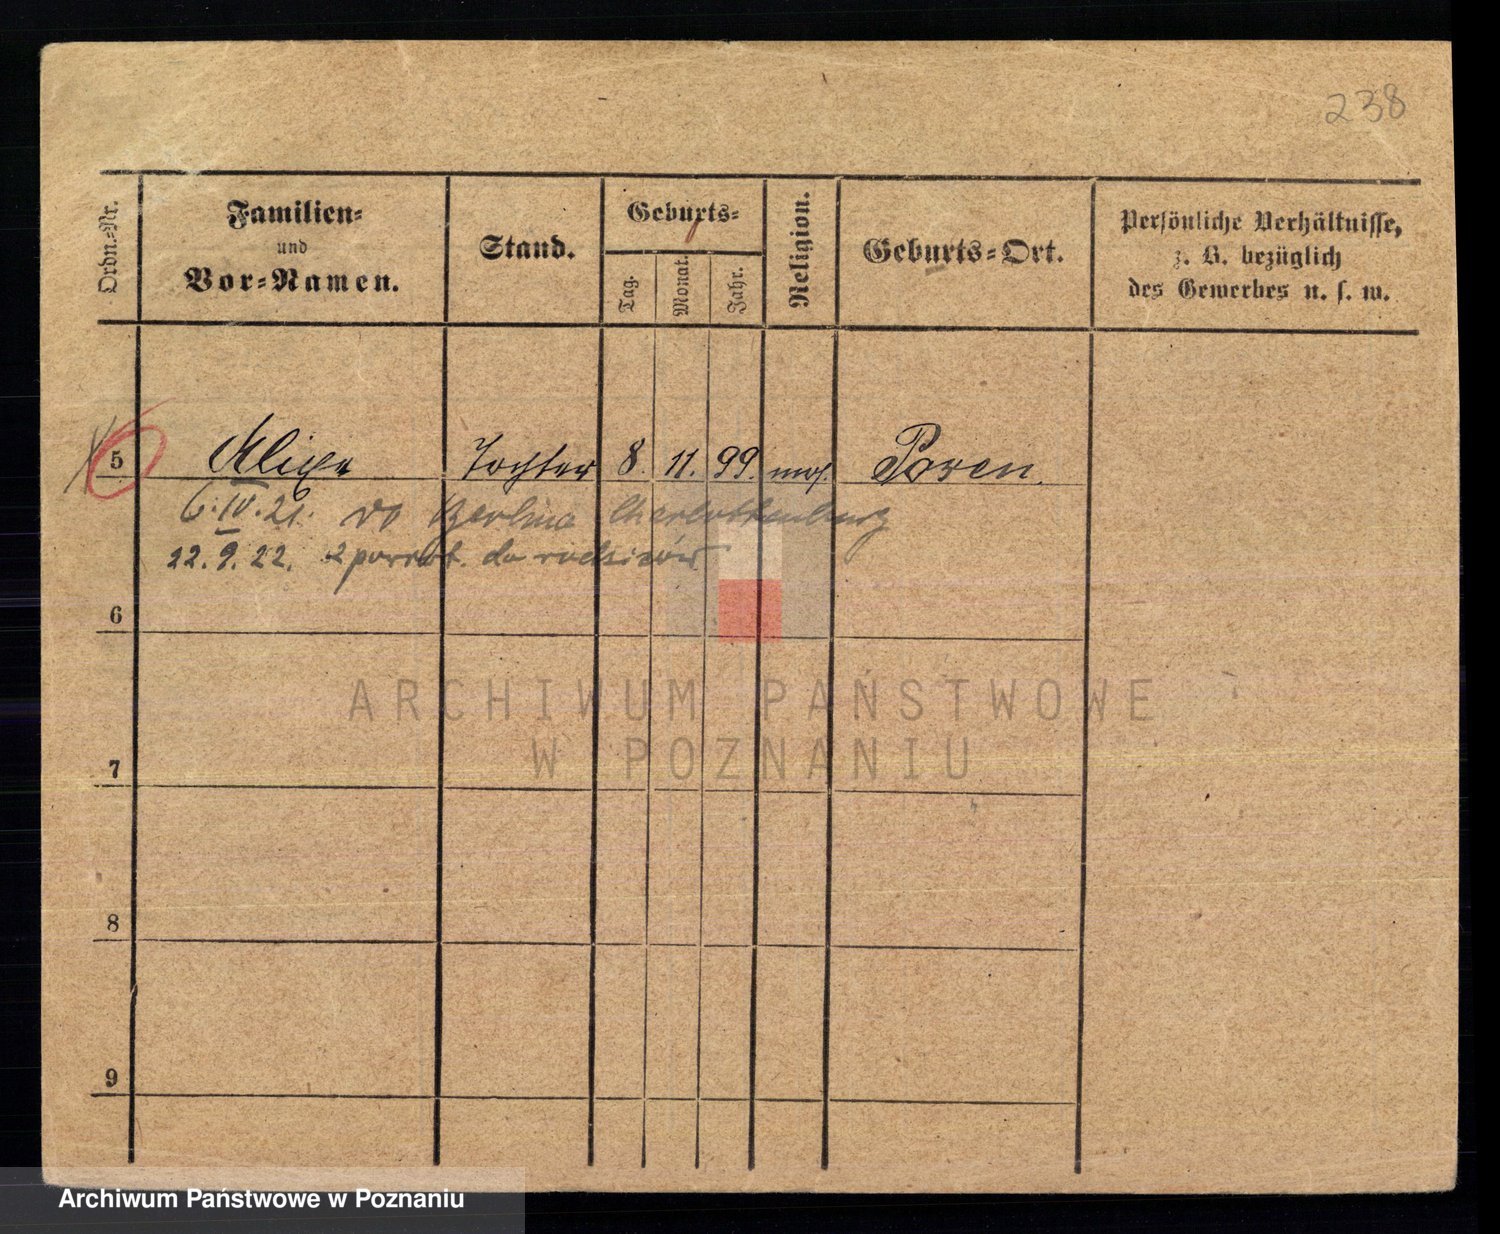 238
Ordn.-Nr.
Familien-
und
Vor-Namen.
Stand.
Geburts-
Tag.
Monat.
Jahr.
Religion.
Geburts-Ort.
Persönliche Verhältnisse,
z. B. bezüglich
des Gewerbes u. s. w.
5 Tochter 8. 11. 99. mos. Posen.
6.IV.21. do Berlina Charlottenburg
22.9.22. z powrot. do rodziców
6
7
8
9
ARCHIWUM PAŃSTWOWE
W POZNANIU
Archiwum Państwowe w Poznaniu